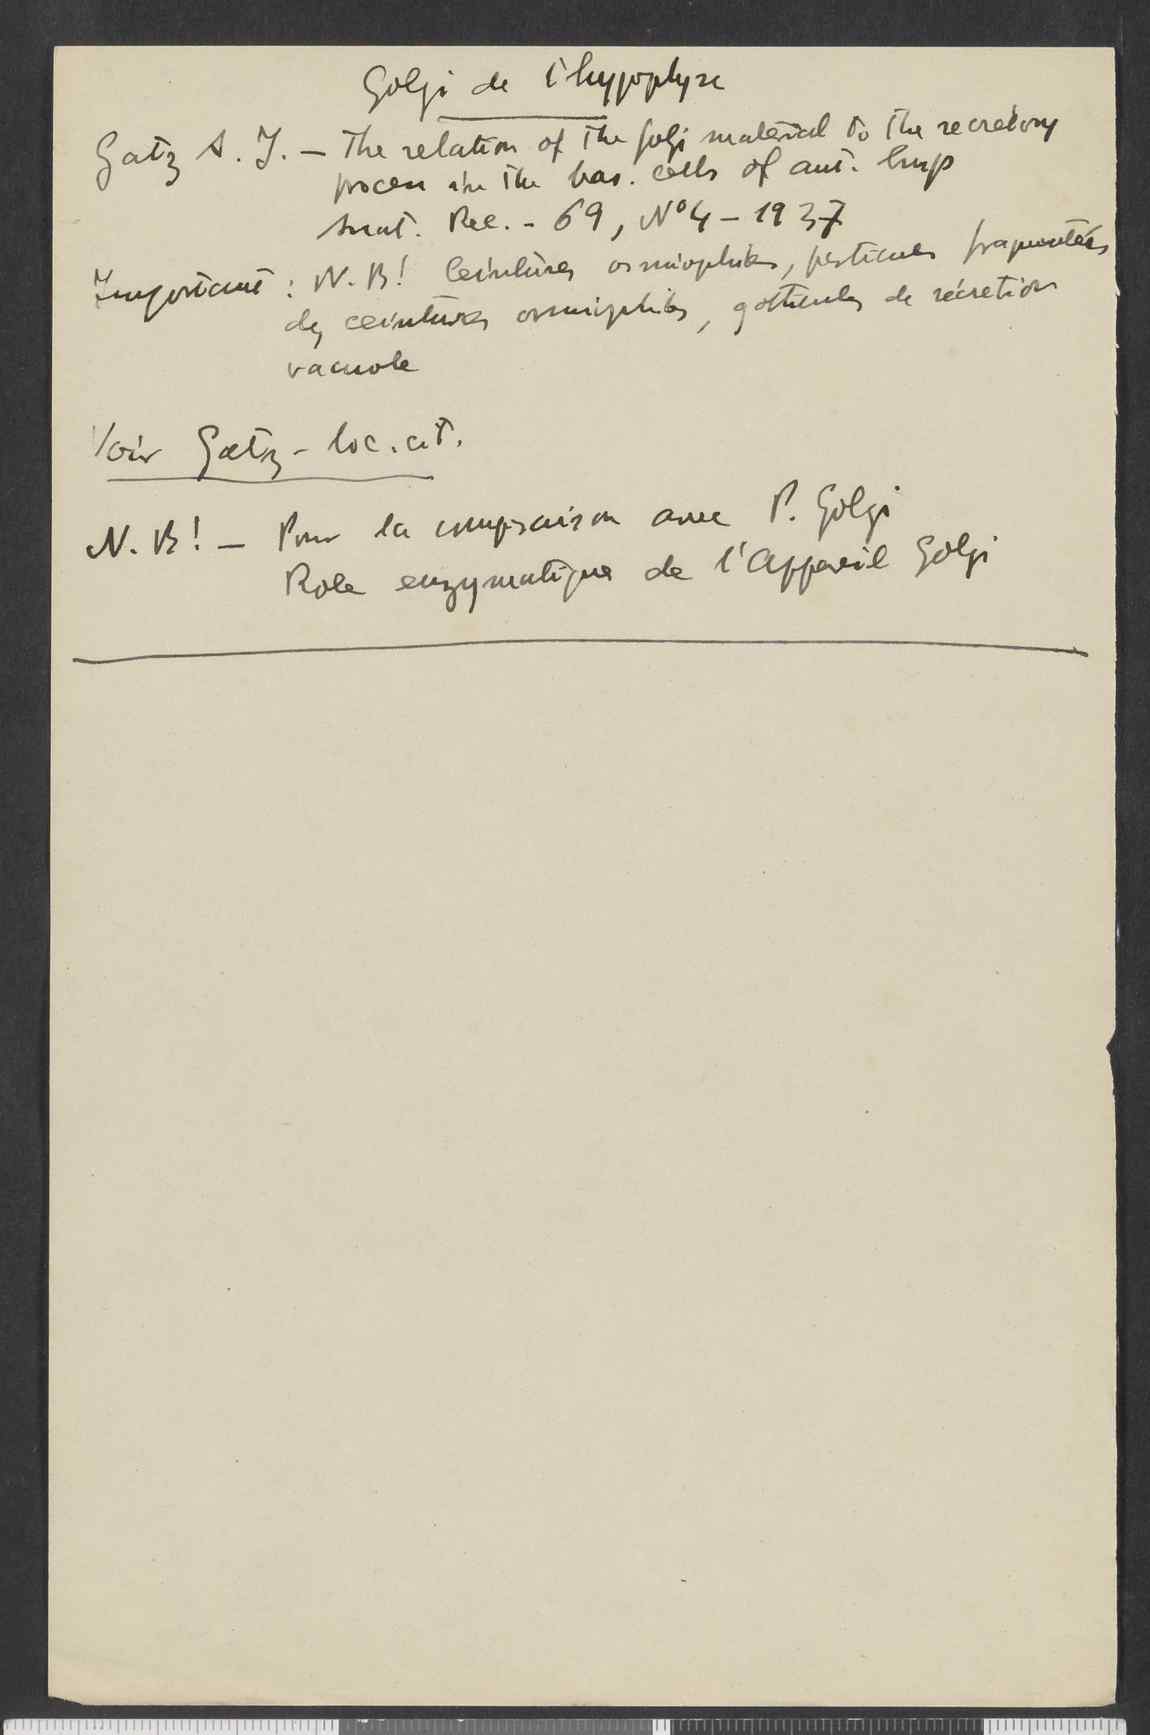 Golgi de l'hypophyse
Gatz A. J. — The relation of the golgi material to the secretory
process in the bas. cells of ant. lmp
Anat. Rec. - 69, No 4 - 1937
Important : N.B! Ceintures osmiophiles, particules fragmentées
des ceintures osmiophiles, gottules de sécrétion
vacuole
Voir Gatz - loc. cit.
N.B! — Pour la comparaison avec P. Golgi
Role enzymatique de l'Appareil Golgi